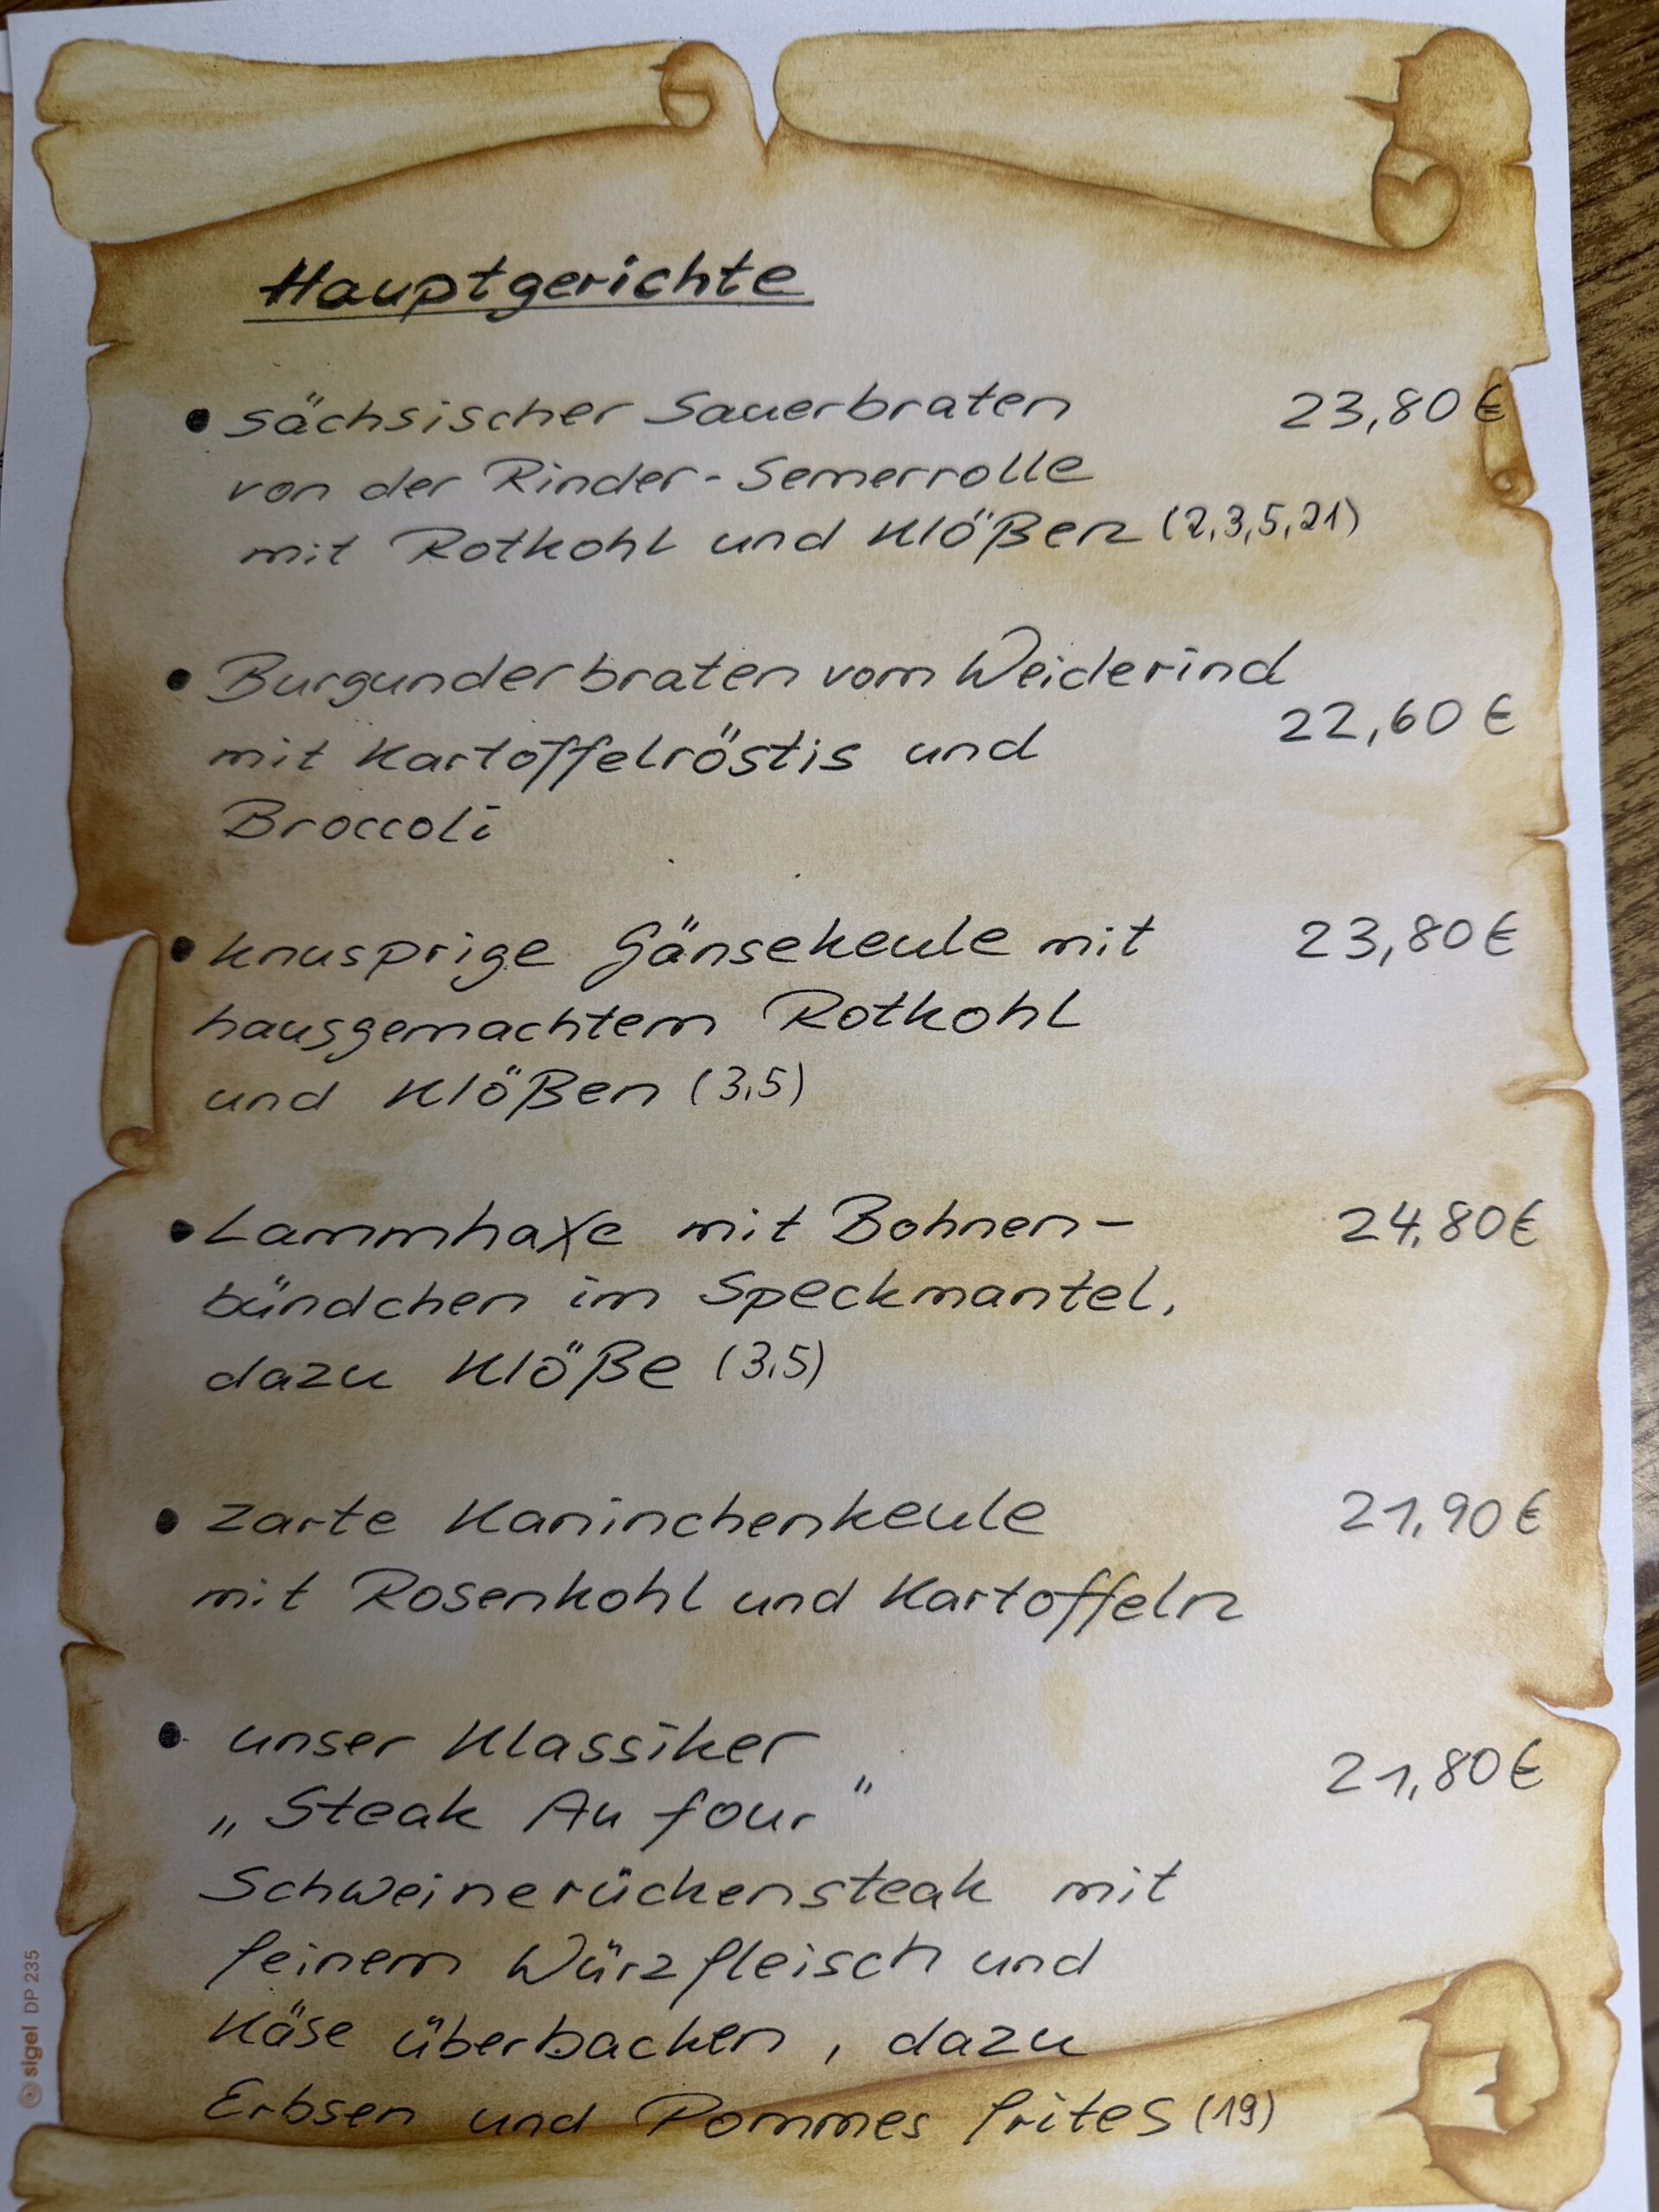 Hauptgerichte
• sächsischer Sauerbraten 23,80 €
von der Rinder-Semerrolle
mit Rotkohl und Klößen (2,3,5,21)
• Burgunderbraten vom Weiderind
22,60 €
mit Kartoffelröstis und
Broccoli
• knusprige Gänsekeule mit 23,80 €
hausgemachtem Rotkohl
und Klößen (3,5)
• Lammhaxe mit Bohnen- 24,80 €
bündchen im Speckmantel,
dazu Klöße (3,5)
• zarte Kaninchenkeule 21,90 €
mit Rosenkohl und Kartoffeln
• unser Klassiker
21,80 €
„Steak Au four"
Schweinerückensteak mit
feinem Würzfleisch und
Käse überbacken, dazu
Erbsen und Pommes frites (19)
sigel DP 235